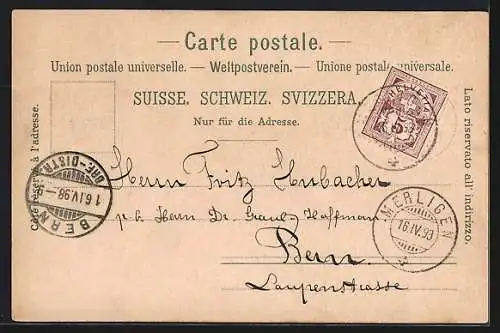 Carte postale.
Union postale universelle. — Weltpostverein. — Unione postale universale.
SUISSE. SCHWEIZ. SVIZZERA.
Nur für die Adresse.
Côté réservé à l'adresse.
Lato riservato all' indirizzo.
HELVETIA
5
BERN
BRF-DISTR.
16.IV.98
MERLIGEN
16.IV.98
Herrn Fritz Hubacher
p. h. Herrn Dr. Hoffmann
Bern.
Laupenstrasse